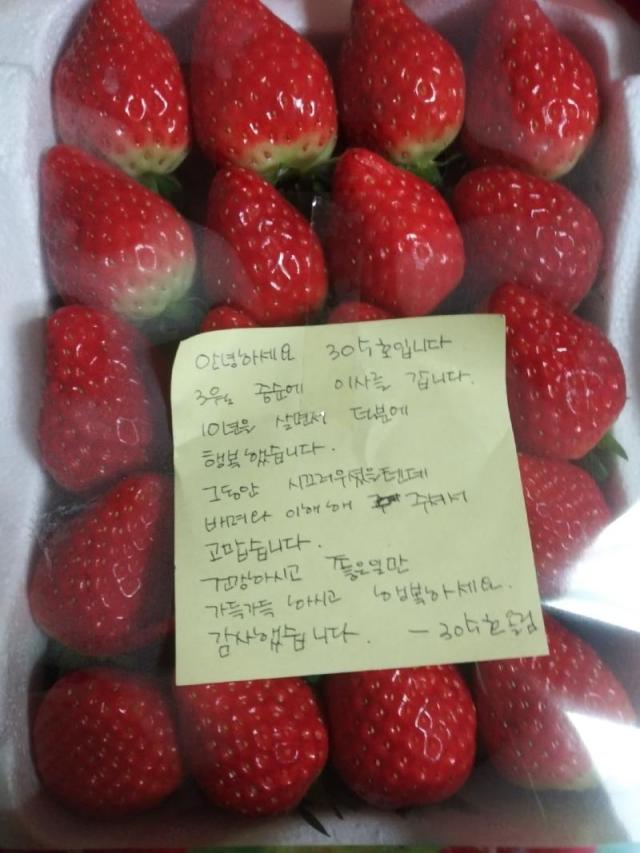 안녕하세요 305호입니다
3월 중순에 이사를 갑니다.
10년을 살면서 덕분에
행복했습니다.
그동안 시끄러우셨을텐데
배려와 이해해 주셔서
고맙습니다.
건강하시고 좋은일만
가득가득 하시고 행복하세요.
감사했습니다. - 305호 드림